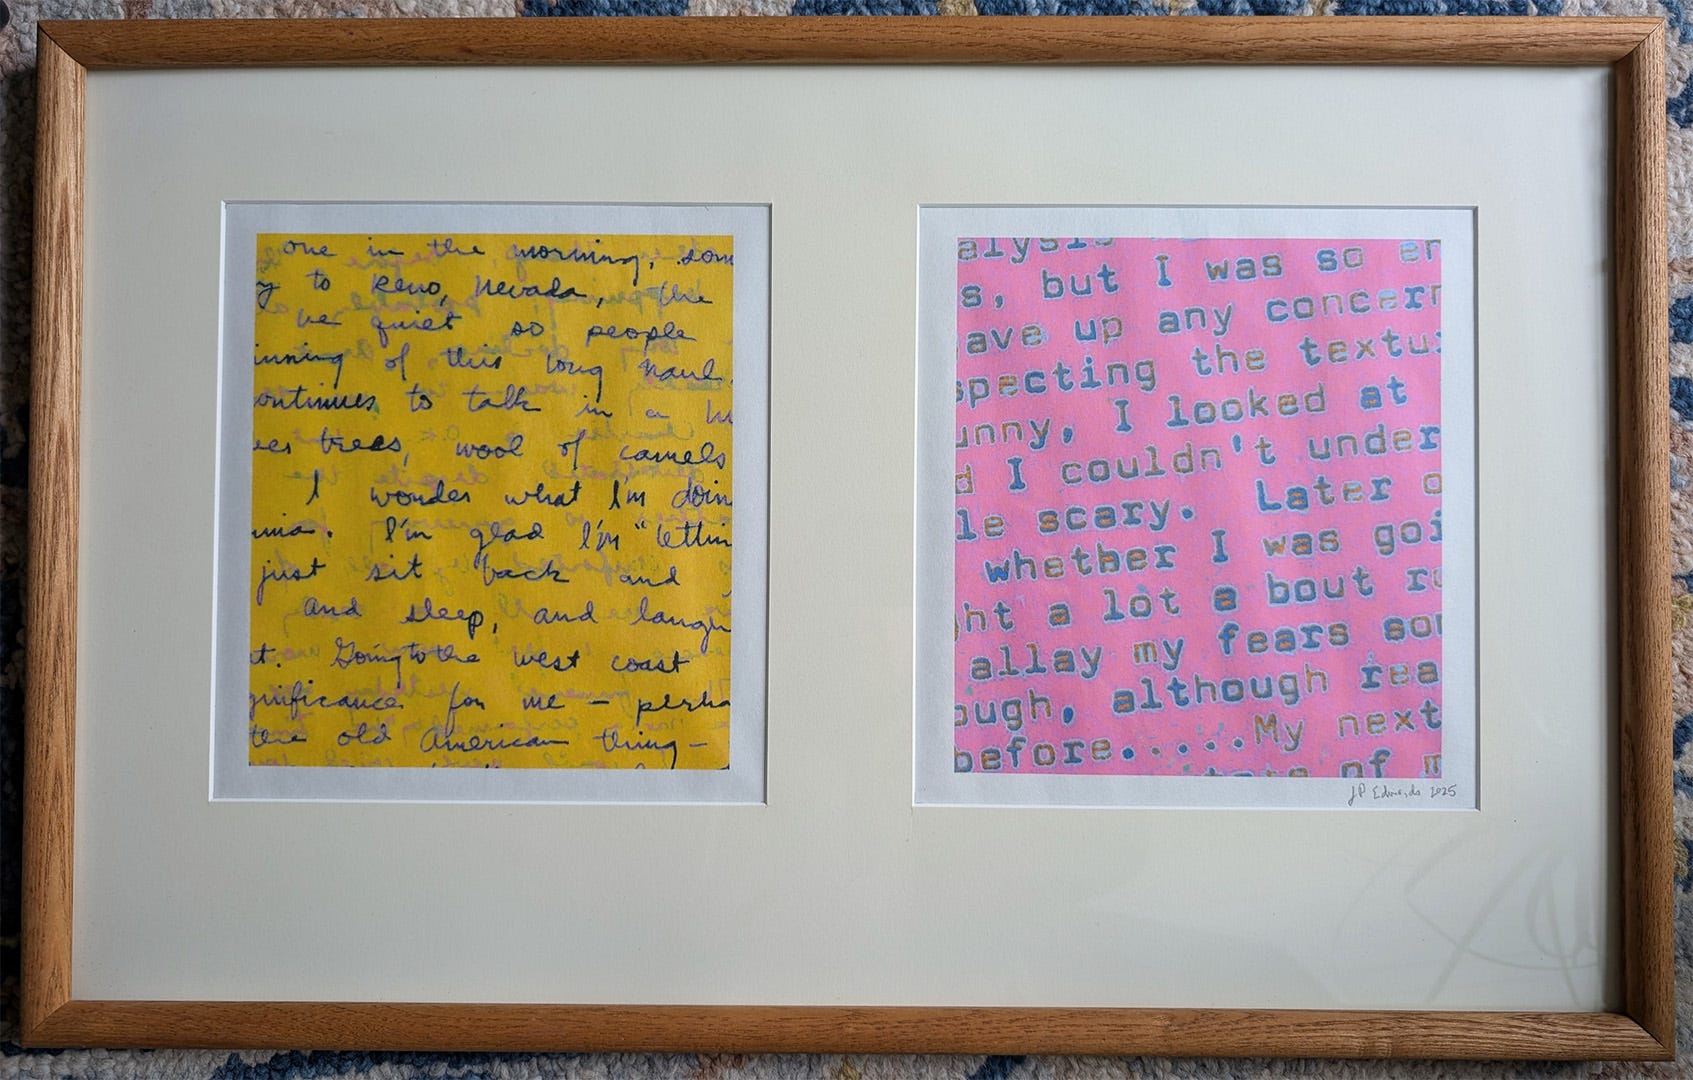 one in the morning, som
y to Reno, Nevada, the
ve quiet so people
inning of this long haul.
ontinues to talk in a hu
ees trees, wool of camels
I wonder what I'm doin
nia. I'm glad I'm "lettin
just sit back and
and sleep, and laugh
t. Going to the west coast
gnificance for me — perha
the old American thing —
alysis
s, but I was so en
ave up any concern
specting the textu
unny, I looked at
d I couldn't under
le scary. Later o
whether I was goi
ht a lot a bout r
allay my fears som
ough, although rea
before.....My next
tate of m
JP Edwards 2025